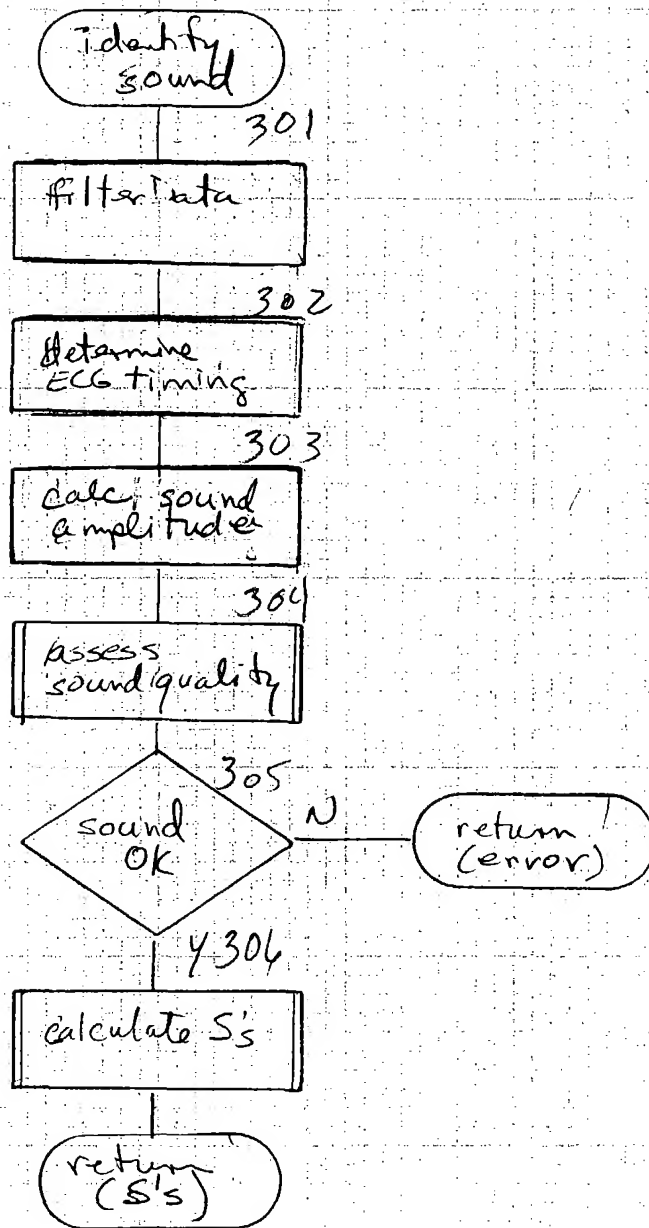 identify
sound
301
filter data
302
determine
ECG timing
303
calc. sound
amplitude
304
assess
sound quality
305
sound
OK
N
return
(error)
Y 306
calculate S's
return
(S's)